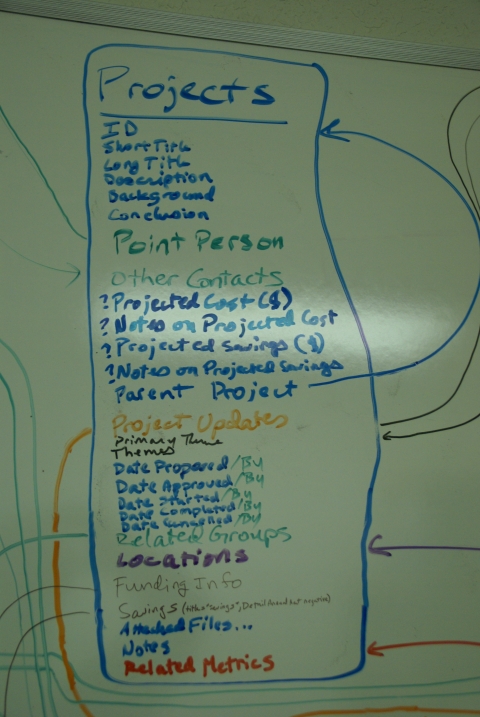 Projects
ID
Short Title
Long Title
Description
Background
Conclusion
Point Person
Other Contacts
? Projected Cost ($)
? Notes on Projected Cost
? Projected Savings ($)
? Notes on Projected Savings
Parent Project
Project Updates
Primary Theme
Themes
Date Proposed/By
Date Approved/By
Date Started/By
Date Completed/By
Date /By
Related Groups
Locations
Funding Info
Savings
Attached Files...
Notes
Related Metrics